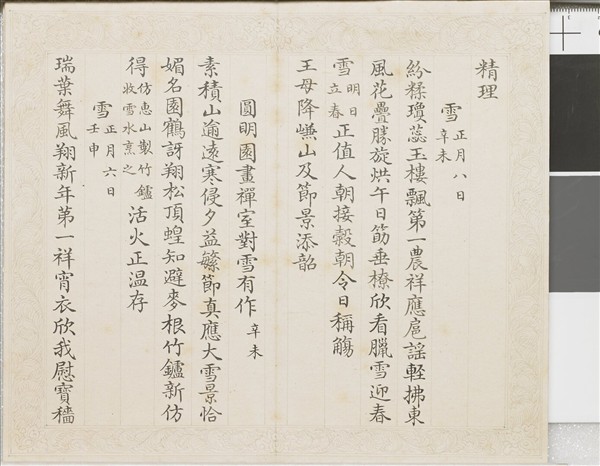 精理
雪正月八日辛未
紛糅瓊蕊玉樓飄第一農祥應扈謠軽拂東
風花疊勝旋烘午日筯垂橑欣看臘雪迎春
雪明日立春正值人朝接穀朝今日稱觴
王母降巇山及節景添韶
圓明園畫禪室對雪有作辛未
素積山逾遠寒侵夕益縈節真應大雪景恰
媚名園鶴訝翔松頂蝗知避麥根竹鑪新仿
得仿惠山製竹鑪收雪水烹之活火正温存
雪正月六日壬申
瑞葉舞風翔新年第一祥宵衣欣我慰寶穡